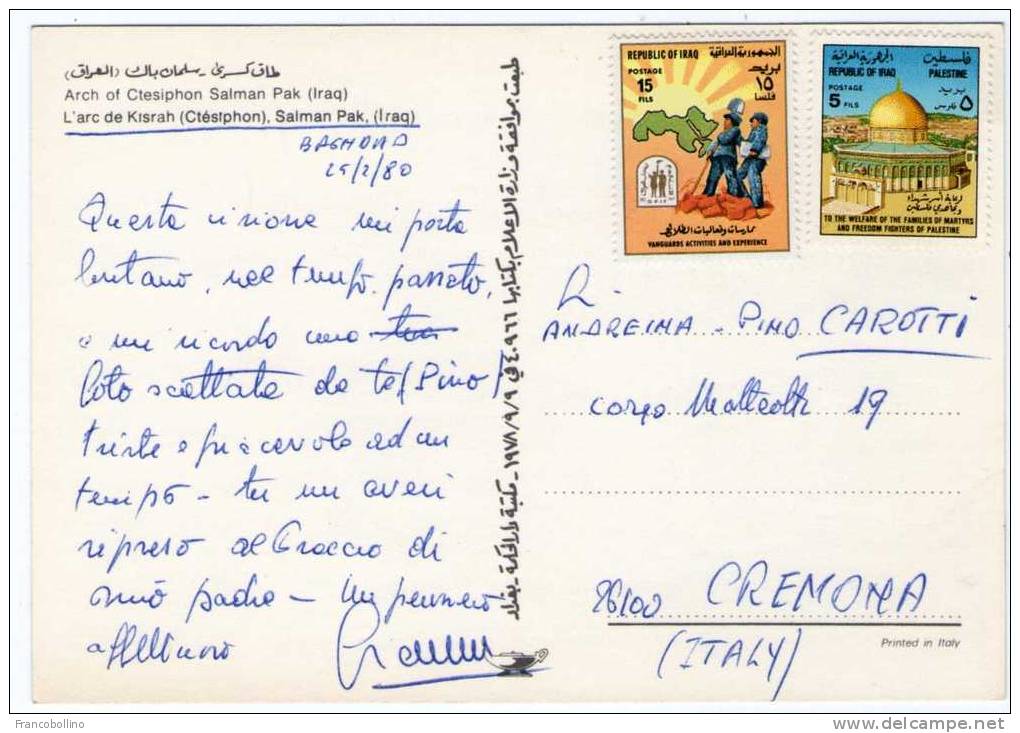 طاق كسرى - سلمان باك (العراق)
Arch of Ctesiphon Salman Pak (Iraq)
L'arc de Kisrah (Ctésiphon), Salman Pak, (Iraq)
BAGHDAD
25/2/80
Questa visione mi porta
lontano, nel tempo passato,
e mi ricordo una
foto scattata da te (Pino)
triste e piacevole ad un
tempo - tu mi avevi
ripreso al braccio di
mio padre - Un pensiero
affettuoso
طبعت بموافقة وزارة الاعلام بكتابها ٤٠٩٦٦ في ١٩٧٨/٩/٩ - مكتبة دار الحكمة - بغداد
REPUBLIC OF IRAQ الجمهورية العراقية
POSTAGE بريد
15 ١٥
FILS فلسا
ممارسات وفعاليات الطلائع
VANGUARDS ACTIVITIES AND EXPERIENCE
الجمهورية العراقية فلسطين
REPUBLIC OF IRAQ PALESTINE
POSTAGE بريد
5 FILS ٥ فلوس
رعاية أسر شهداء
ومجاهدي فلسطين
TO THE WELFARE OF THE FAMILIES OF MARTYRS
AND FREEDOM FIGHTERS OF PALESTINE
ANDREINA - PINO CAROTTI
corso Matteotti 19
26100 CREMONA
(ITALY)
Printed in Italy
Francobollino
www.delcampe.net